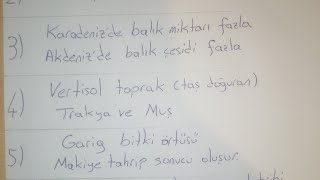 3) Karadeniz'de balık miktarı fazla
Akdeniz'de balık çeşidi fazla
4) Vertisol toprak (taş doğuran)
Trakya ve Muş
5) Garig bitki örtüsü
Makiye tahrip sonucu oluşur.